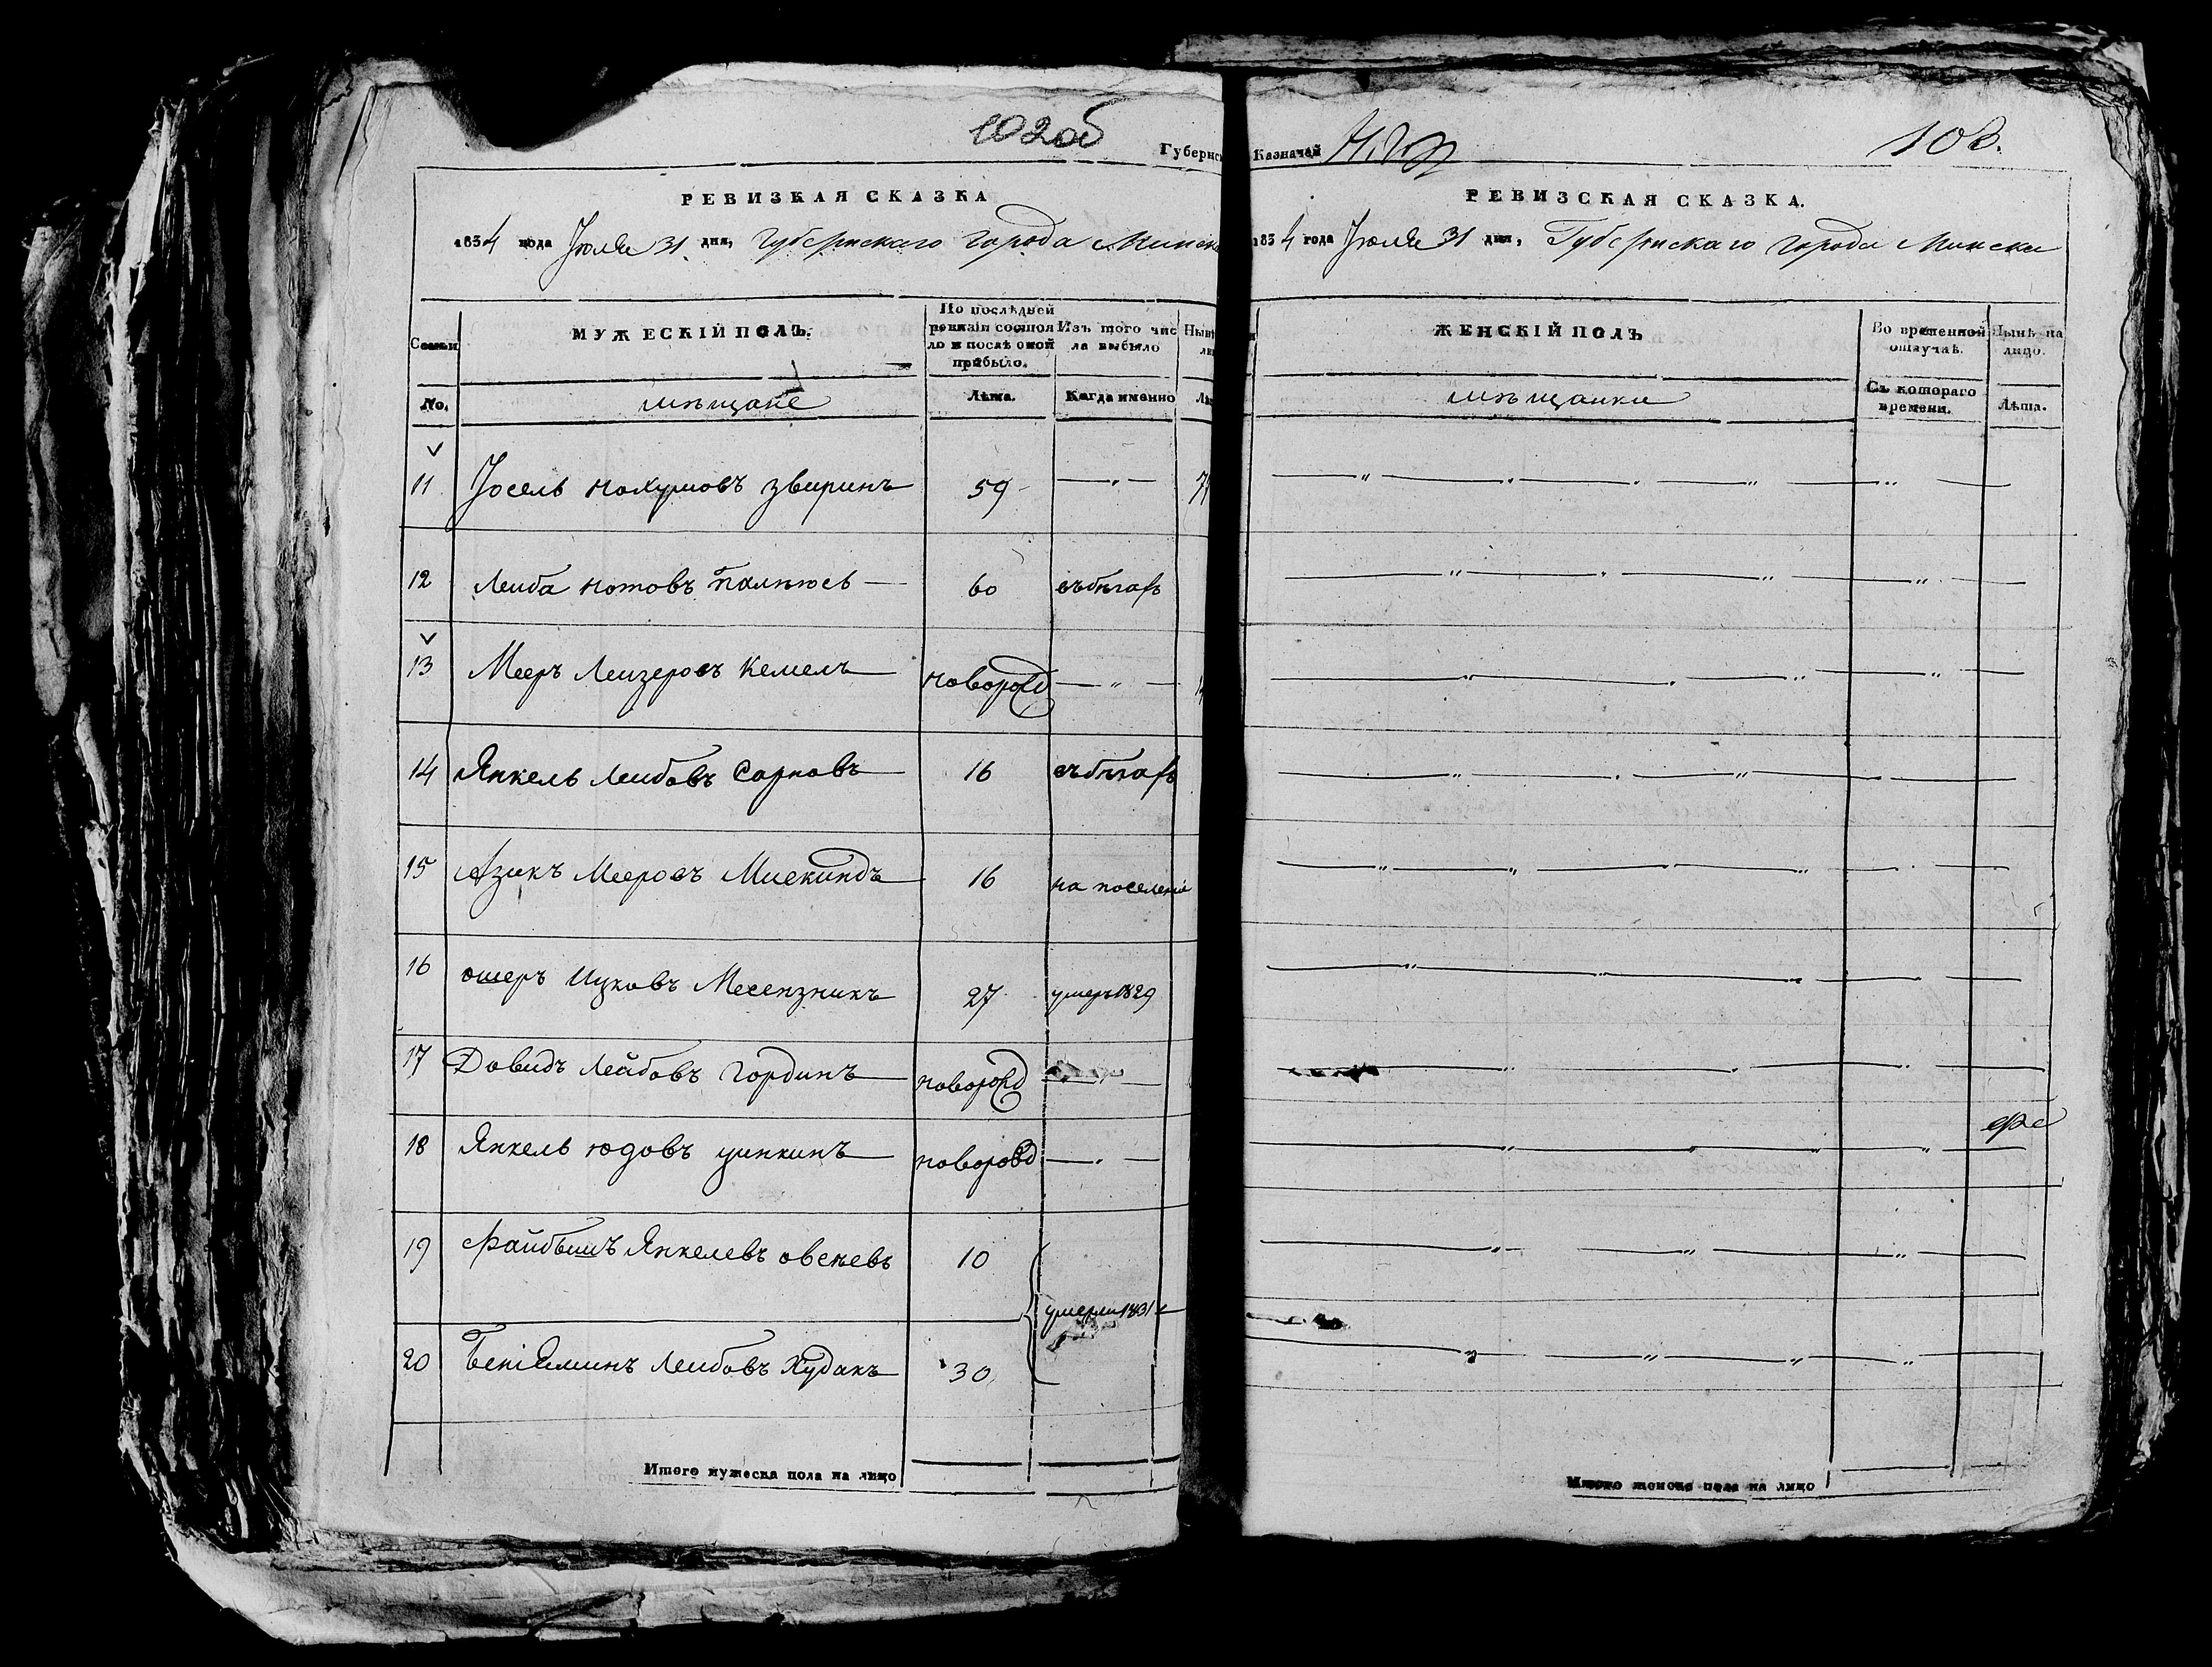 102об
Губернс
РЕВИЗКАЯ СКАЗКА
1834 года Іюля 31 дня, Губернскаго города Минска
Семьи
МУЖЕСКІЙ ПОЛЪ.
По послѣдней ревизіи состоя ло и послѣ оной прибыло.
Изъ того чис ла выбыло
Нын
No.
мѣщане
Лѣта.
Когда именно
Лѣ
11 Іосель Нохумовъ Зверинъ 59 — „ — 7
12 Леиба Нотовъ — 60 въ бѣгахъ
13 Мееръ Леизеровъ Кемелъ новорожд — „ —
14 Янкель Леибовъ Сорновъ 16 въ бѣгахъ
15 Азикъ Мееровъ Мискиндъ 16 на поселеніи
16 Ошеръ Ицковъ Месензникъ 27 умеръ 1829
17 Довидъ Лейбовъ Гординъ новорожд — „ —
18 Янкель Юдовъ Цинкинъ новорожд — „ —
19 Файбышъ Янкелевъ Овсѣевъ 10
умерли 1831
20 Беніяминъ Леибовъ Худакъ 30
Итого мужеска пола на лицо
Казначей
103.
РЕВИЗСКАЯ СКАЗКА.
1834 года Іюля 31 дня, Губернскаго города Минска
ЖЕНСКІЙ ПОЛЪ
Во временной отлучкѣ.
Нынѣ на лицо.
мѣщанки
Съ котораго времени.
Лѣта.
Итого женска пола на лицо